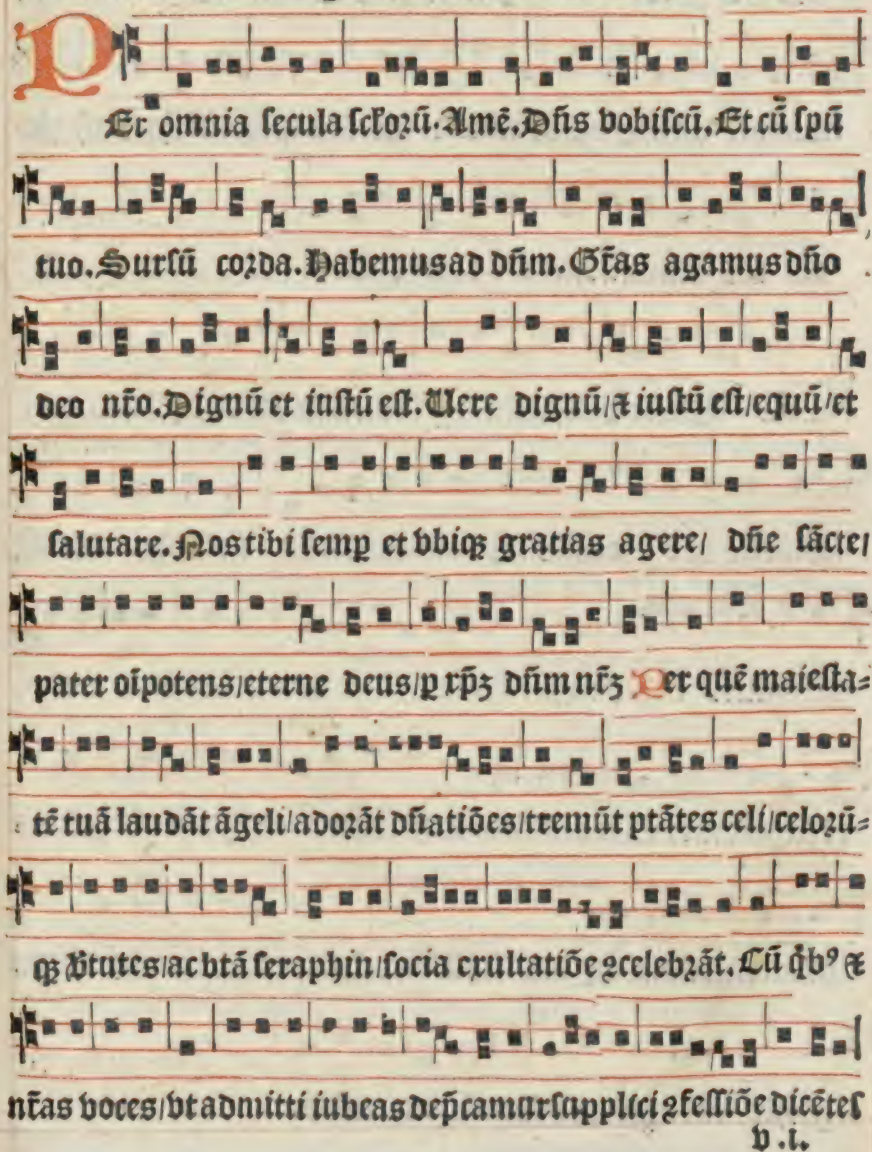 PEr omnia secula sclorū. Amē. Dñs vobiscū. Et cū spū
tuo. Sursū corda. Habemus ad dñm. Gr̄as agamus dño
deo nr̄o. Dignū et iustū est. Uere dignū/ ⁊ iustū est/ equū/ et
salutare. Nos tibi semꝑ et vbiqꝫ gratias agere/ dñe sācte/
pater oīpotens/ eterne deus/ ꝑ xp̄ꝫ dñm nr̄ꝫ Per quē maiesta⸗
tē tuā laudāt āgeli/ adorāt dñatiōes/ tremūt ptātes celi/ celorū⸗
qꝫ v̄tutes/ ac btā seraphin/ socia exultatiōe ꝯcelebrāt. Cū qͥbꝰ ⁊
nr̄as voces/ vt admitti iubeas dep̄camur supplici ꝯfessiōe dicētes
v.i.